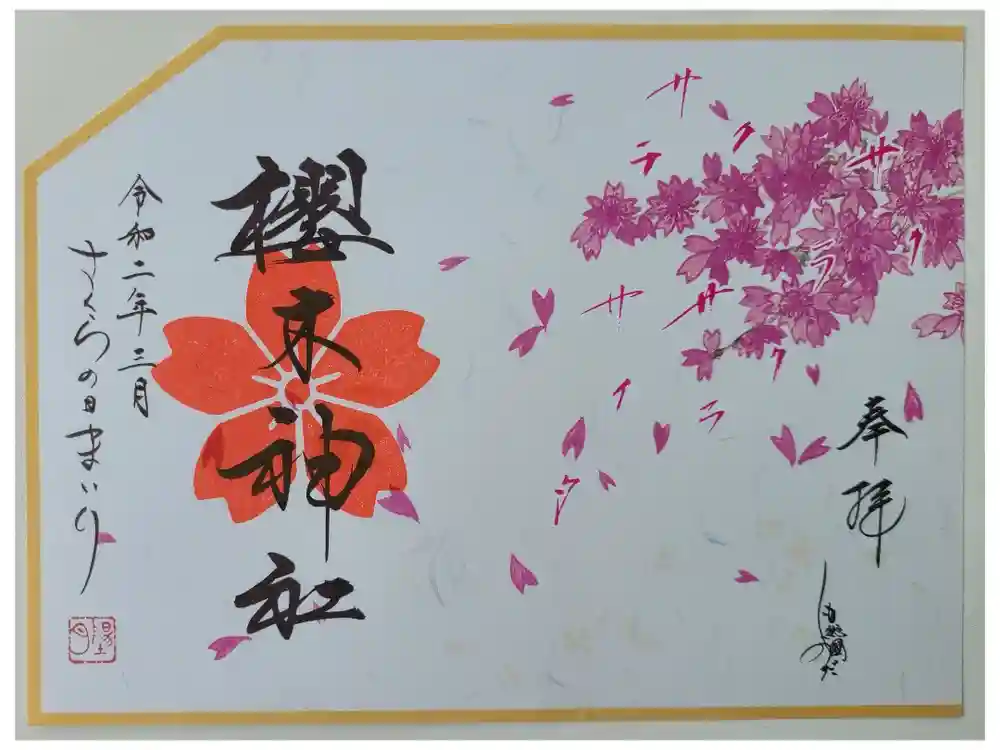 奉拝
サクラ
サクラ
サクライ
サクラ
櫻木神社
令和二年三月
さくらの日まいり